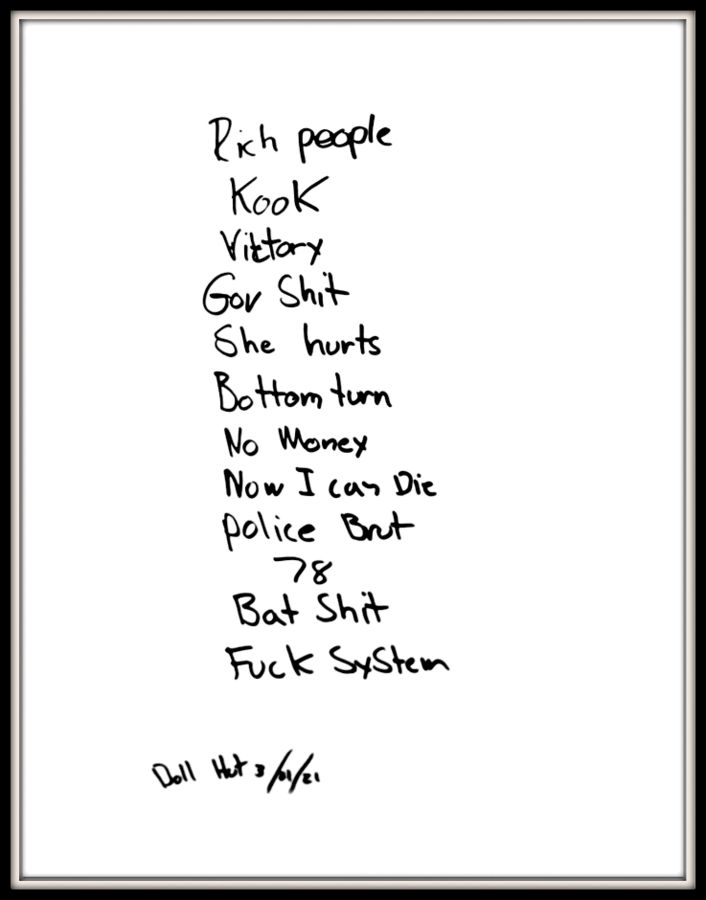 Rich people
Kook
Victory
Gov Shit
She hurts
Bottom turn
No Money
Now I can Die
police Brut
78
Bat Shit
Fuck System
Doll Hut 3/01/21